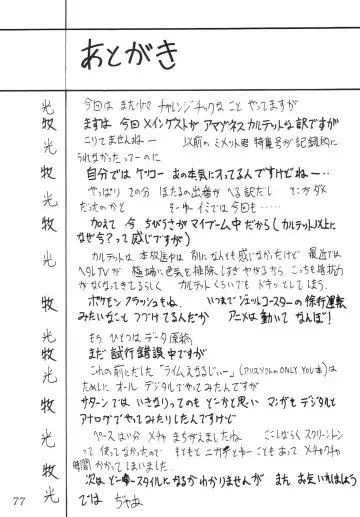 あとがき
光 今回は また少々 チャレンジチックなこと やってますが
牧 まずは 今回 メインゲストが アマゾネスカルテットな訳ですが
光 こりてませんねー 以前の ミメット君 特集号が 記録的に
うれなかったってーのに
牧 自分では ケッコー あの本気に入ってるんですけどねー…
光 やっぱり その分 ほたるの出番が へる訳だし そこがダメ
だったのかと そーゆイミでは今回も……
牧 加えて 今 ちびうさがマイブーム中だから(カルテット以上に
なぜ今?って感じですが)
光 カルテットは 本放送中は 別になんとも感じなかったけど 最近では
ヘタレTVが 極端に色気を排除しすぎやがるから こっちも抵抗力
がなくなってきてるらしく カルテットくらいでも ドキッとしてしまう
牧 ポケモン フラッシュもね、 いつまでジェットコースターの徐行運転
みたいなことつづけてるんだか アニメは動いて なんぼ!
光 もう ひとつは データ原稿
牧 まだ 試行錯誤中ですが
光 これの前にだした 「ライムえなるじぃー」(アリスソフトのONLY YOU本)は
ためしに オール デジタルでやってみたんですが
牧 サターンでは いきなりってのも どーかと思い マンガも デジタルと
アナログでやってみたりしたんですけど
光 ペースはい分 メチャ まちがえましたね ここしばらく スクリーントーン
って 使ってなかったので もともと ニガ手とゆーこともあって メチャクチャ
時間かかってしまいました
牧 次は どーゆースタイルになるかわかりませんが また お会いしましょう
光 では ぢゃあ
77